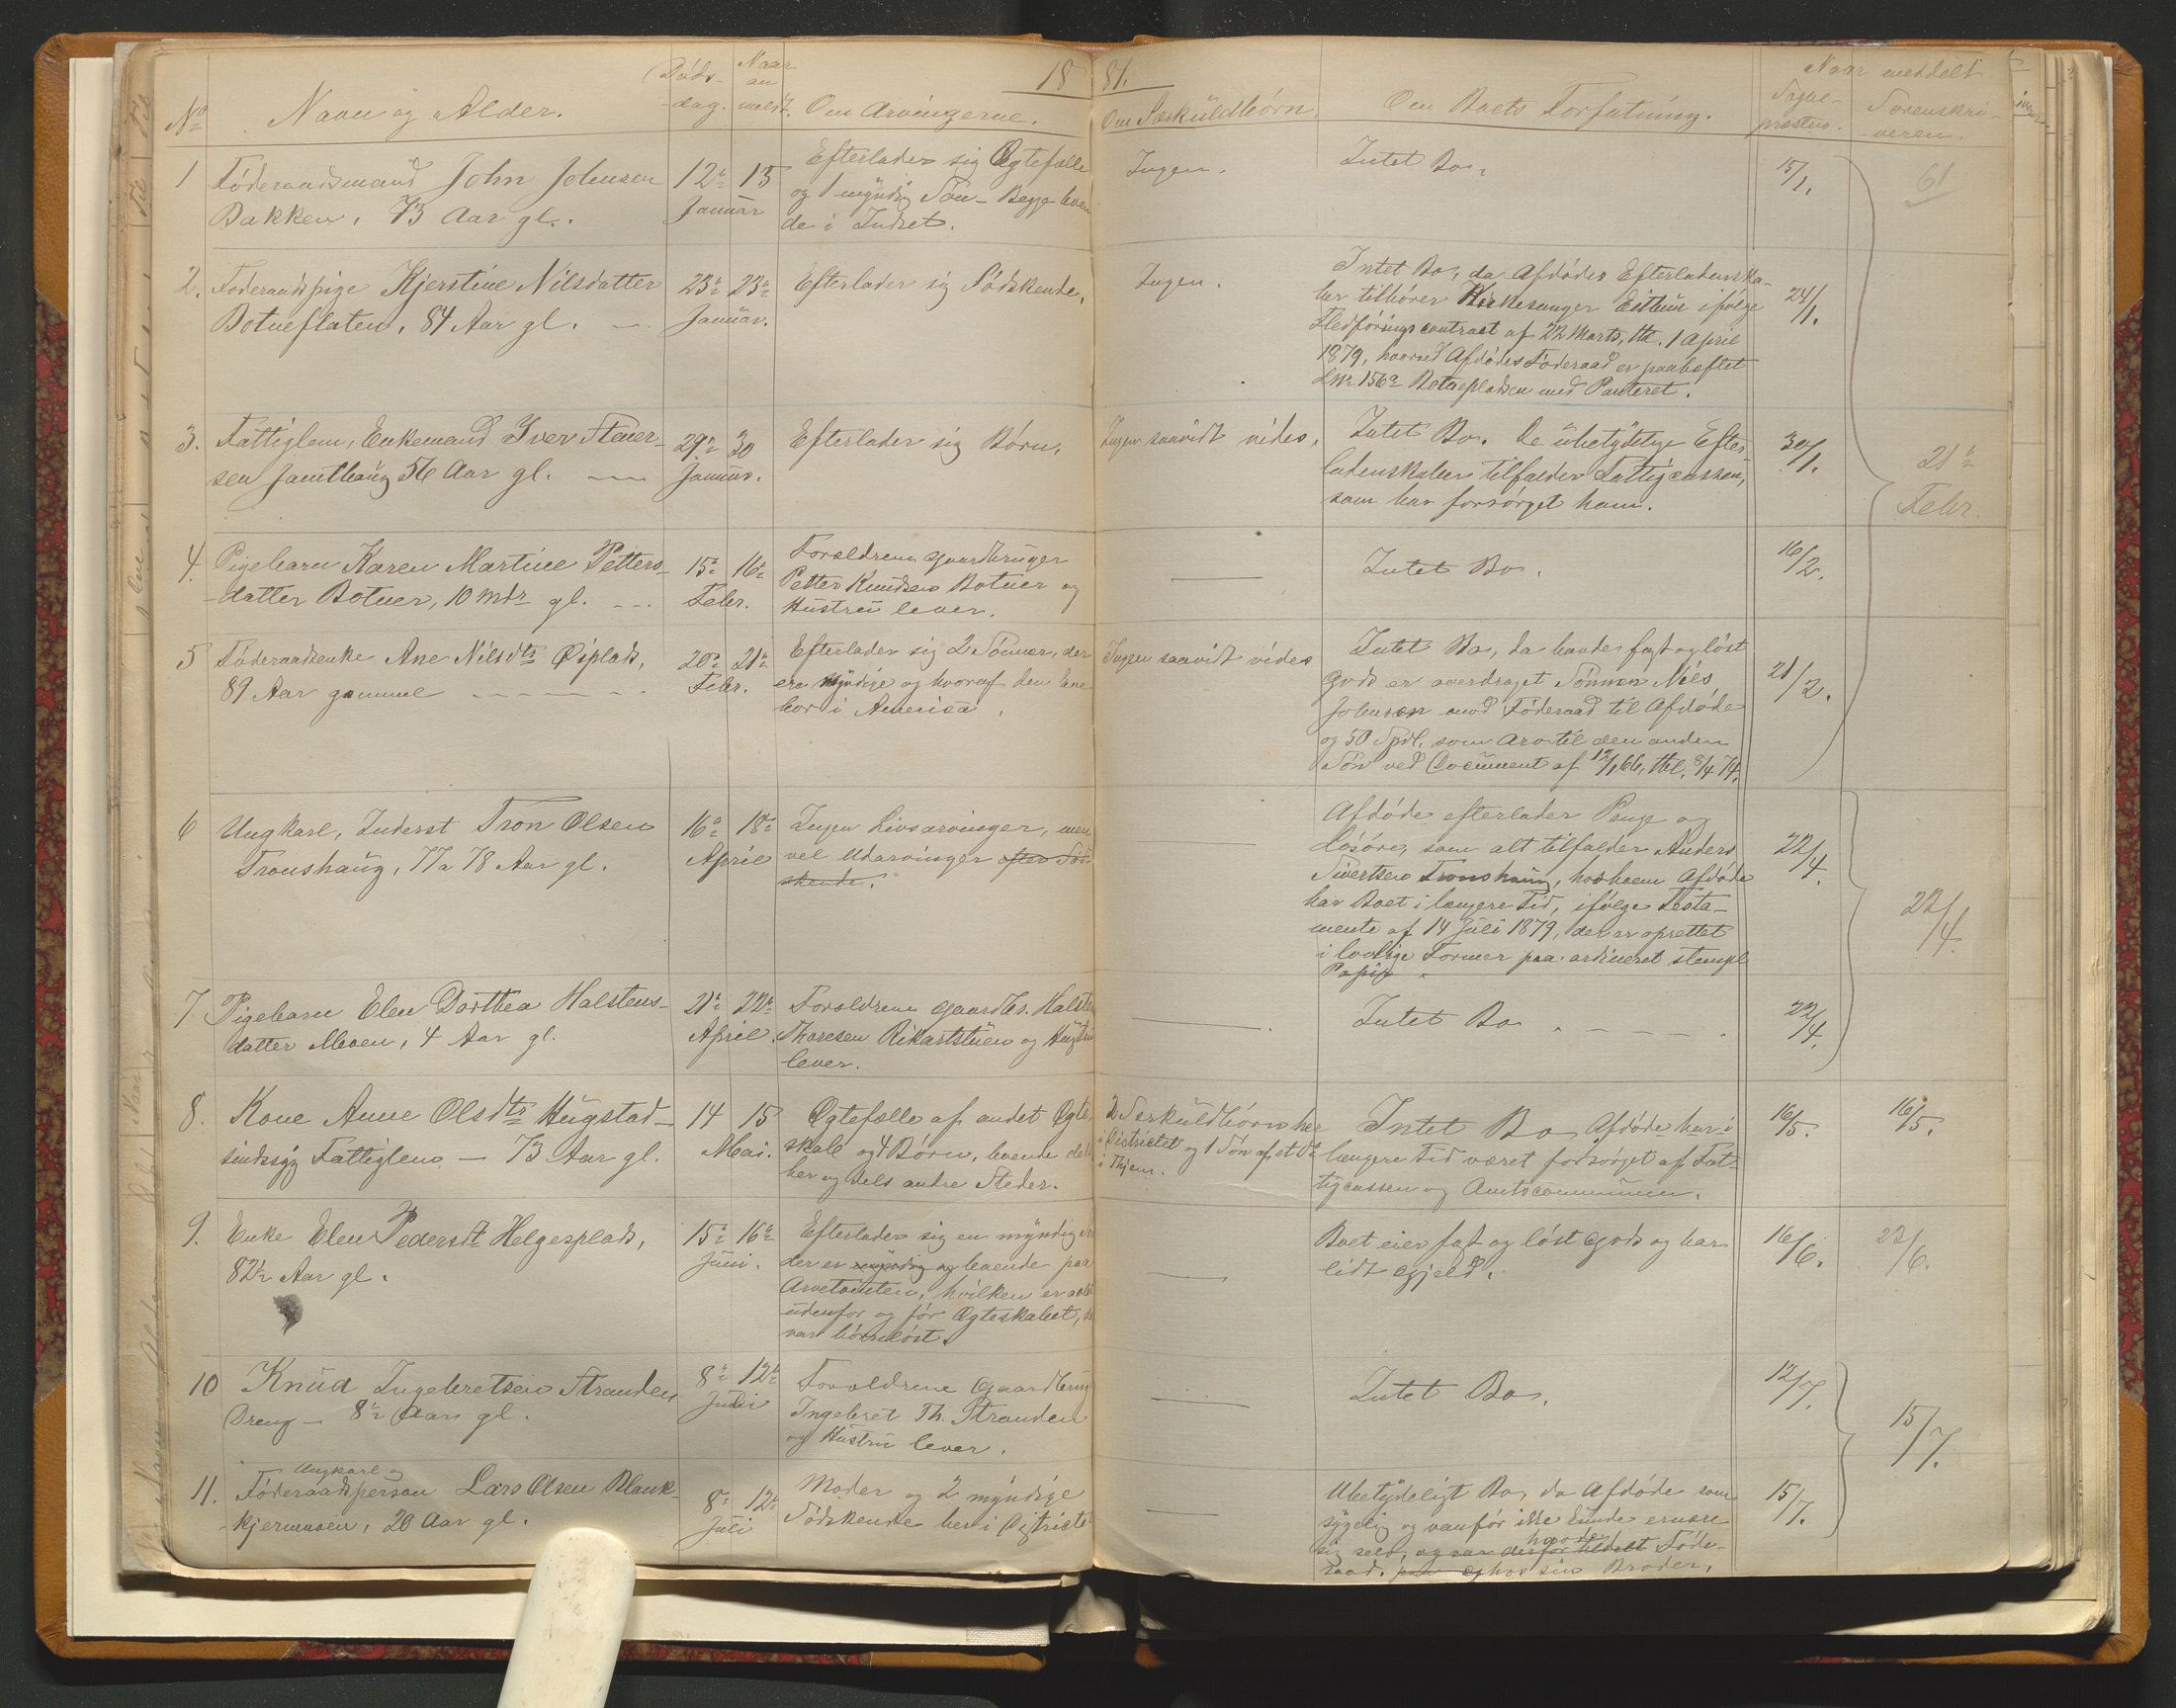 1881.
No
Navn og Alder.
Døds-
dag.
Naar
an
meldt.
Om Arvingerne.
Om Særkuldbørn
Om Boets Forfatning.
Naar meddelt
Sogne-
præsten.
Sorenskri-
veren.
1
Föderaadsmand John Johnsen
Bakken, 73 Aar gl.
12te 13
Januar
Efterlader sig Ægtefælle
og 1 myndig Søn - Begge leven
de i Indset.
Ingen.
Intet Bo.
15/1.
61
2.
Föderaadspige Kjerstine Nilsdatter
Botneflaten, 84 Aar gl.
23de 23de
Januar.
Efterlader sig Södskende.
Ingen.
Intet Bo, da Afdødes Efterladenska-
ber tilhører Kirkesanger Eithun ifølge
Fledføringscontract af 22 Marts, thl. 1 April
1879, hvorved Afdødes Föderaad er paaheftet
LNr 156a Botnepladsen med Panteret.
24/1.
3.
Fattiglem, Enkemand Iver Stener-
sen Jamthaug 56 Aar gl.
29de 30
Januar.
Efterlader sig Börn.
Ingen saavidt vides.
Intet Bo. De ubetydelige Efter
ladenskaber tilfalder Fattigcassen,
som har forsørget ham.
30/1.
21de
Febr.
4.
Pigebarn Karen Martine Petters-
datter Botner, 10 mdr gl.
15de 16de
Febr.
Forældrene Gaardbruger
Petter Knudsen Botner og
Hustru lever.
Intet Bo.
16/2.
5
Föderaadsenke Ane Nilsdtr Øiplads,
89 Aar gammel
20de 21de
Febr.
Efterlader sig 2 Sönner, der
ere Myndige og hvoraf den Ene
bor i America.
Ingen saavidt vides
Intet Bo, da hendes fast og løst
Gods er overdraget Sönnen Nils
Johnsen mod Föderaad til Afdøde
og 50 Spdl. som Arv til den anden
Sön ved Document af 12/1 66, thl. 8/4 74.
21/2.
6
Ungkarl, Inderst Tron Olsen
Tronshaug, 77 a 78 Aar gl.
16de 18de
April
Ingen Livsarvinger, men
vel Udarvinger efter Söd-
skende.
Afdøde efterlader Penge og
Løsøre, som alt tilfalder Anders
Sivertsen Tronshaug, hos hvem Afdøde
har Boet i længere Tid, ifølge Testa-
mente af 14 Juli 1879, der er oprettet
i lovlige Former paa ordineret stempl
Papir
22/4.
22/4.
7
Pigebarn Elen Dorthea Halstens-
datter Moen, 4 Aar gl.
21de 22de
April.
Forældrene Gaardbr. Halsten
Thoresen Rikartstuen og Hustru
lever.
Intet Bo
22/4.
8.
Kone Anne Olsdtr Hugstad
sindssyg Fattiglem - 73 Aar gl.
14 15
Mai.
Ægtefælle af andet Ægte
skab og 4 Börn, levende dels
her og dels andre Steder.
2 Særkuldbörn her
i Districtet og 1 Sön af et
i Thjem.
Intet Bo Afdøde har i
længere Tid været forsørget af Fat-
tigcassen og Amtscommunen.
16/5.
16/5.
9.
Enke Elen Pedersdt Helgesplads,
82½ Aar gl.
15de 16de
Juni.
Efterlader sig en myndig Sön
der er myndig og levende paa
Arvetomten, hvilken er avlet
udenfor og før Ægteskabet, der
var börnløst.
Boet eier fast og løst Gods og har
lidt Gjeld.
16/6.
22/6.
10
Knud Ingebretsen Stranden,
Dreng - 8½ Aar gl.
8de 12te
Juli
Forældrene Gaardbrug
Ingebret Th. Stranden
og Hustru lever.
Intet Bo.
12/7.
15/7.
11.
Ungkarl og
Föderaadsperson Lars Olsen Blank-
kjernmoen, 20 Aar gl.
8de 12te
Juli
Moder og 2 myndige
Södskende her i Districtet
Ubetydeligt Bo, da Afdøde som
sygelig og vanför ikke kunde ernære
sig selv, og var derfor tildelt Föde-
havde
raad. og hos sin Broder.
15/7.